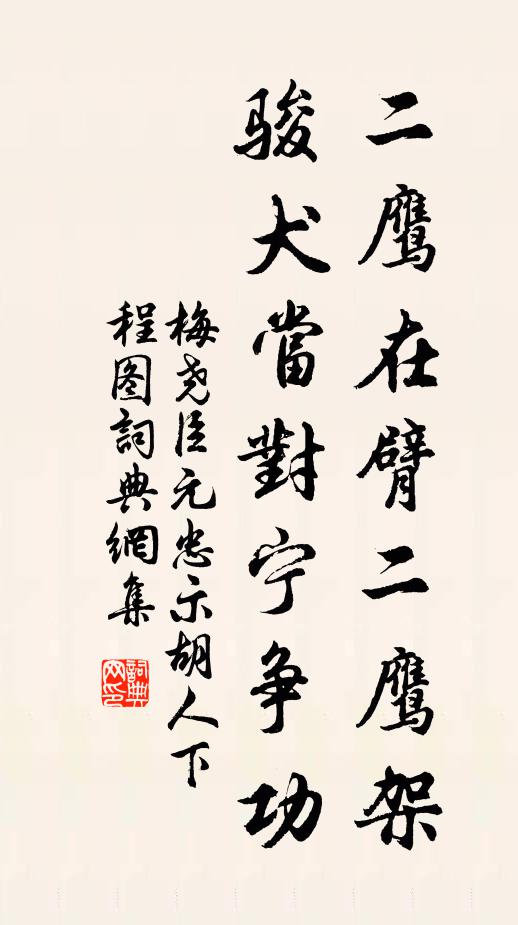 二鹰在臂二鹰架
骏犬當對宁争功
梅尧臣元忠示胡人下
程图詞典網集
詞典网印